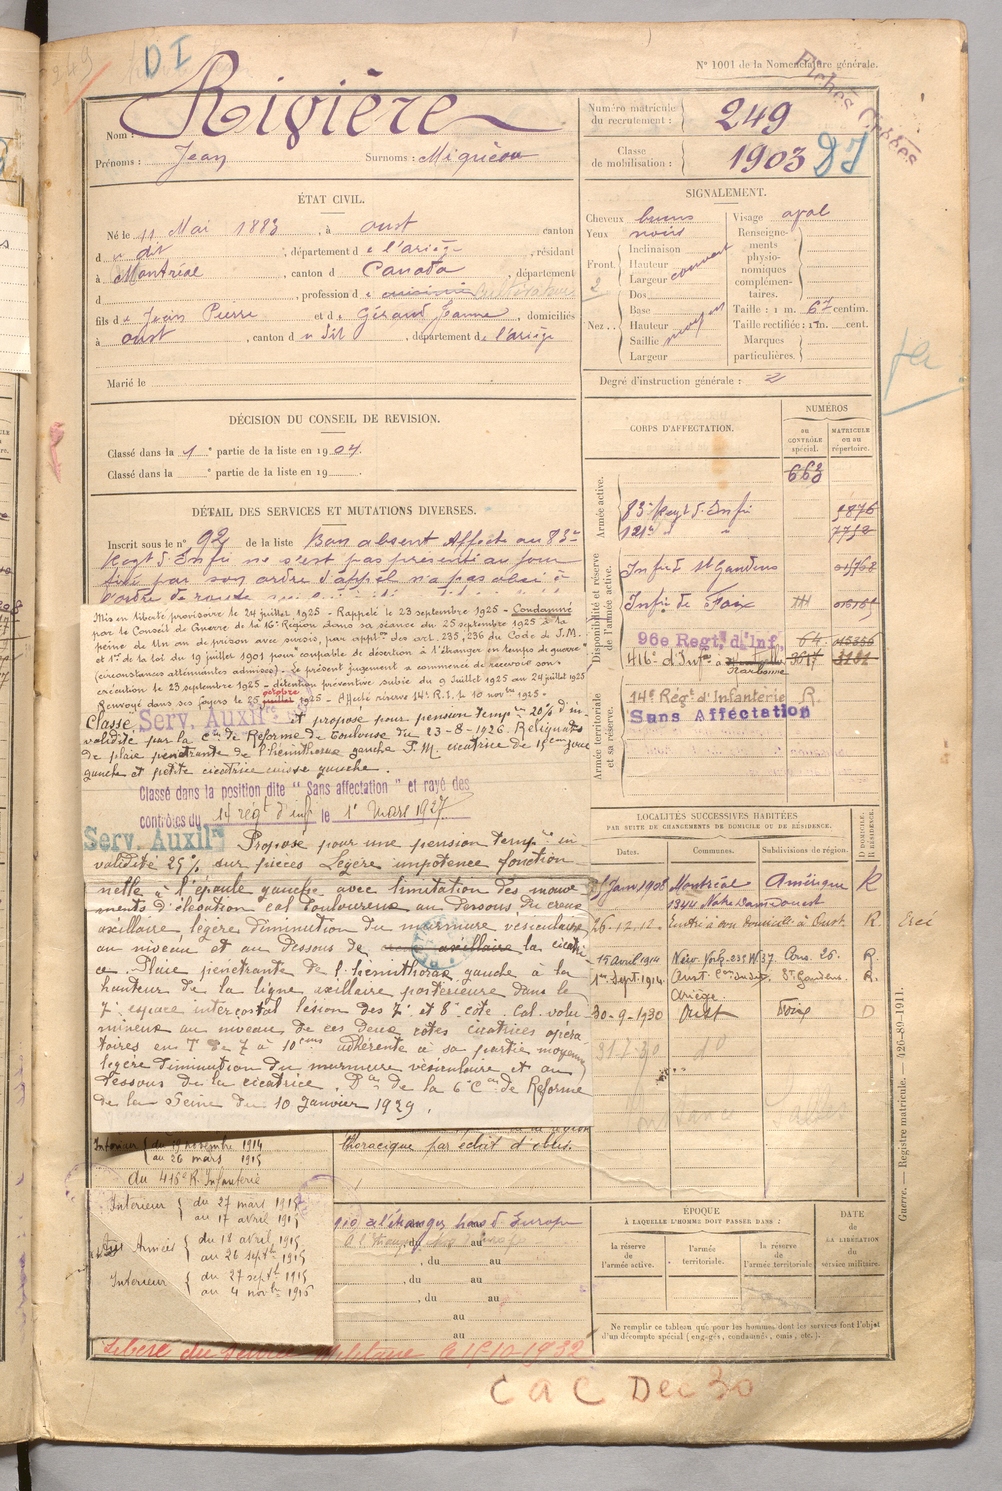 D I
N° 1001 de la Nomenclature générale.
Fichés Croisés
Nom : Rivière
Prénoms : Jean Surnoms : Miquéou
Numéro matricule du recrutement : 249
Classe de mobilisation : 1903
ÉTAT CIVIL.
Né le 11 Mai 1883, à Oust canton
d u dit, département de l'ariège, résidant
à Montréal, canton d Canada, département
d , profession d cultivateur
fils de Jean Pierre et de Giraud Jeanne, domiciliés
à Oust, canton d u dit, département de l'ariège
Marié le
SIGNALEMENT.
Cheveux bruns
Yeux noirs
Front. Inclinaison
Hauteur
Largeur couvert
2 Dos
Nez Base
Hauteur moyen
Saillie
Largeur
Visage oval
Renseignements physionomiques complémentaires.
Taille : 1 m. 67 centim.
Taille rectifiée : 1 m. cent.
Marques particulières.
Degré d'instruction générale : 2
DÉCISION DU CONSEIL DE REVISION.
Classé dans la 1e partie de la liste en 1904.
Classé dans la ° partie de la liste en 19
DÉTAIL DES SERVICES ET MUTATIONS DIVERSES.
Inscrit sous le n° 92 de la liste Bon absent Affecté au 83e
Regt d'Infie ne s'est pas présenté au jour
fixé par son ordre d'appel n'a pas obéi à
l'ordre de route
Mis en liberté provisoire le 24 juillet 1925 - Rappelé le 23 septembre 1925 - Condamné
par le Conseil de Guerre de la 16e Région dans sa séance du 23 septembre 1925 à la
peine de Un an de prison avec sursis, par applon des art. 235, 236 du Code de J.M.
et 1er de la loi du 19 juillet 1901 pour "coupable de désertion à l'étranger en temps de guerre"
(circonstances atténuantes admises) - Le présent jugement a commencé de recevoir son
exécution le 23 septembre 1925 - détention préventive subie du 9 Juillet 1925 au 24 juillet 1925
octobre
Renvoyé dans ses foyers le 25 juillet 1925 - Affecté réserve 14e R.I. le 10 novbre 1925 -
Classé Serv. Auxilre et proposé pour pension tempre 20% d'in-
validité par la Con de Réforme de Toulouse du 23-8-1926. Reliquats
de plaie pénétrante de l'hémithorax gauche P.M. cicatrice de 15 cm joue
gauche et petite cicatrice cuisse gauche.
Classé dans la position dite "Sans affectation" et rayé des
contrôles du 14 regt d'inf le 1er Mars 1927
Serv. Auxilre Proposé pour une pension tempre in-
validité 25% sur pièces Légère impotence fonction
nelle à l'épaule gauche avec limitation des mouve
ments d'élévation cal douloureux au dessous du creux
axillaire légère diminution du murmure vésiculaire
au niveau et au dessous de la cicatri
ce. Plaie pénétrante de l'hémithorax gauche à la
hauteur de la ligne axillaire postérieure dans le
7e espace intercostal lésion des 7e et 8e côte. Cal volu
mineux au niveau de ces deux côtes cicatrices opéra
toires en T de 7 à 10 cms adhérente à sa partie moyenne
légère diminution du murmure vésiculaire et au
dessous de la cicatrice. Don de la 6e Con de Réforme
de la Seine du 10 Janvier 1929.
Intérieur { du 19 novembre 1914
au 26 mars 1915
thoracique par éclat d'obus.
du 416e R. Infanterie
Intérieur { du 27 mars 1915
au 17 avril 1915
Aux Armées { du 18 avril 1915
au 26 septre 1915
Intérieur { du 27 septre 1915
au 4 novbre 1916
à l'étranger hors d'Europe
, du au
, du au
, du au
au
au
Libéré du service militaire le 15-10-1932
C a C Dec 30
CORPS D'AFFECTATION.
NUMÉROS
au CONTRÔLE spécial.
MATRICULE ou au répertoire.
662
Armée active.
83e Regt d'Infie 5876
121e d° " 7752
Disponibilité et réserve de l'armée active.
Infie de St Gaudens
Infie de Foix
96e Regt d'Inf. 64
416e d'Infie à Narbonne 3617
Armée territoriale et sa réserve.
14e Régt d'Infanterie R.
Sans Affectation
LOCALITÉS SUCCESSIVES HABITÉES
PAR SUITE DE CHANGEMENTS DE DOMICILE OU DE RÉSIDENCE.
Dates. Communes. Subdivisions de région. D DOMICILE. R RÉSIDENCE.
Janv 1908 Montréal Amérique R
1344 Notre Dame ouest
26-12.12. Rentré à son domicile à Oust. R Ercé
15 avril 1914 New York 233 W 37. R.
1er Sept. 1914. Oust St Gaudens. R.
Ariège
30-9-1930 Oust Foix D
31-7-30 d°
ÉPOQUE
À LAQUELLE L'HOMME DOIT PASSER DANS :
la réserve de l'armée active.
l'armée territoriale.
la réserve de l'armée territoriale
DATE de LA LIBÉRATION du service militaire.
Ne remplir ce tableau que pour les hommes dont les services font l'objet
d'un décompte spécial (engagés, condamnés, omis, etc.).
Guerre. — Registre matricule. — 426-89-1911.